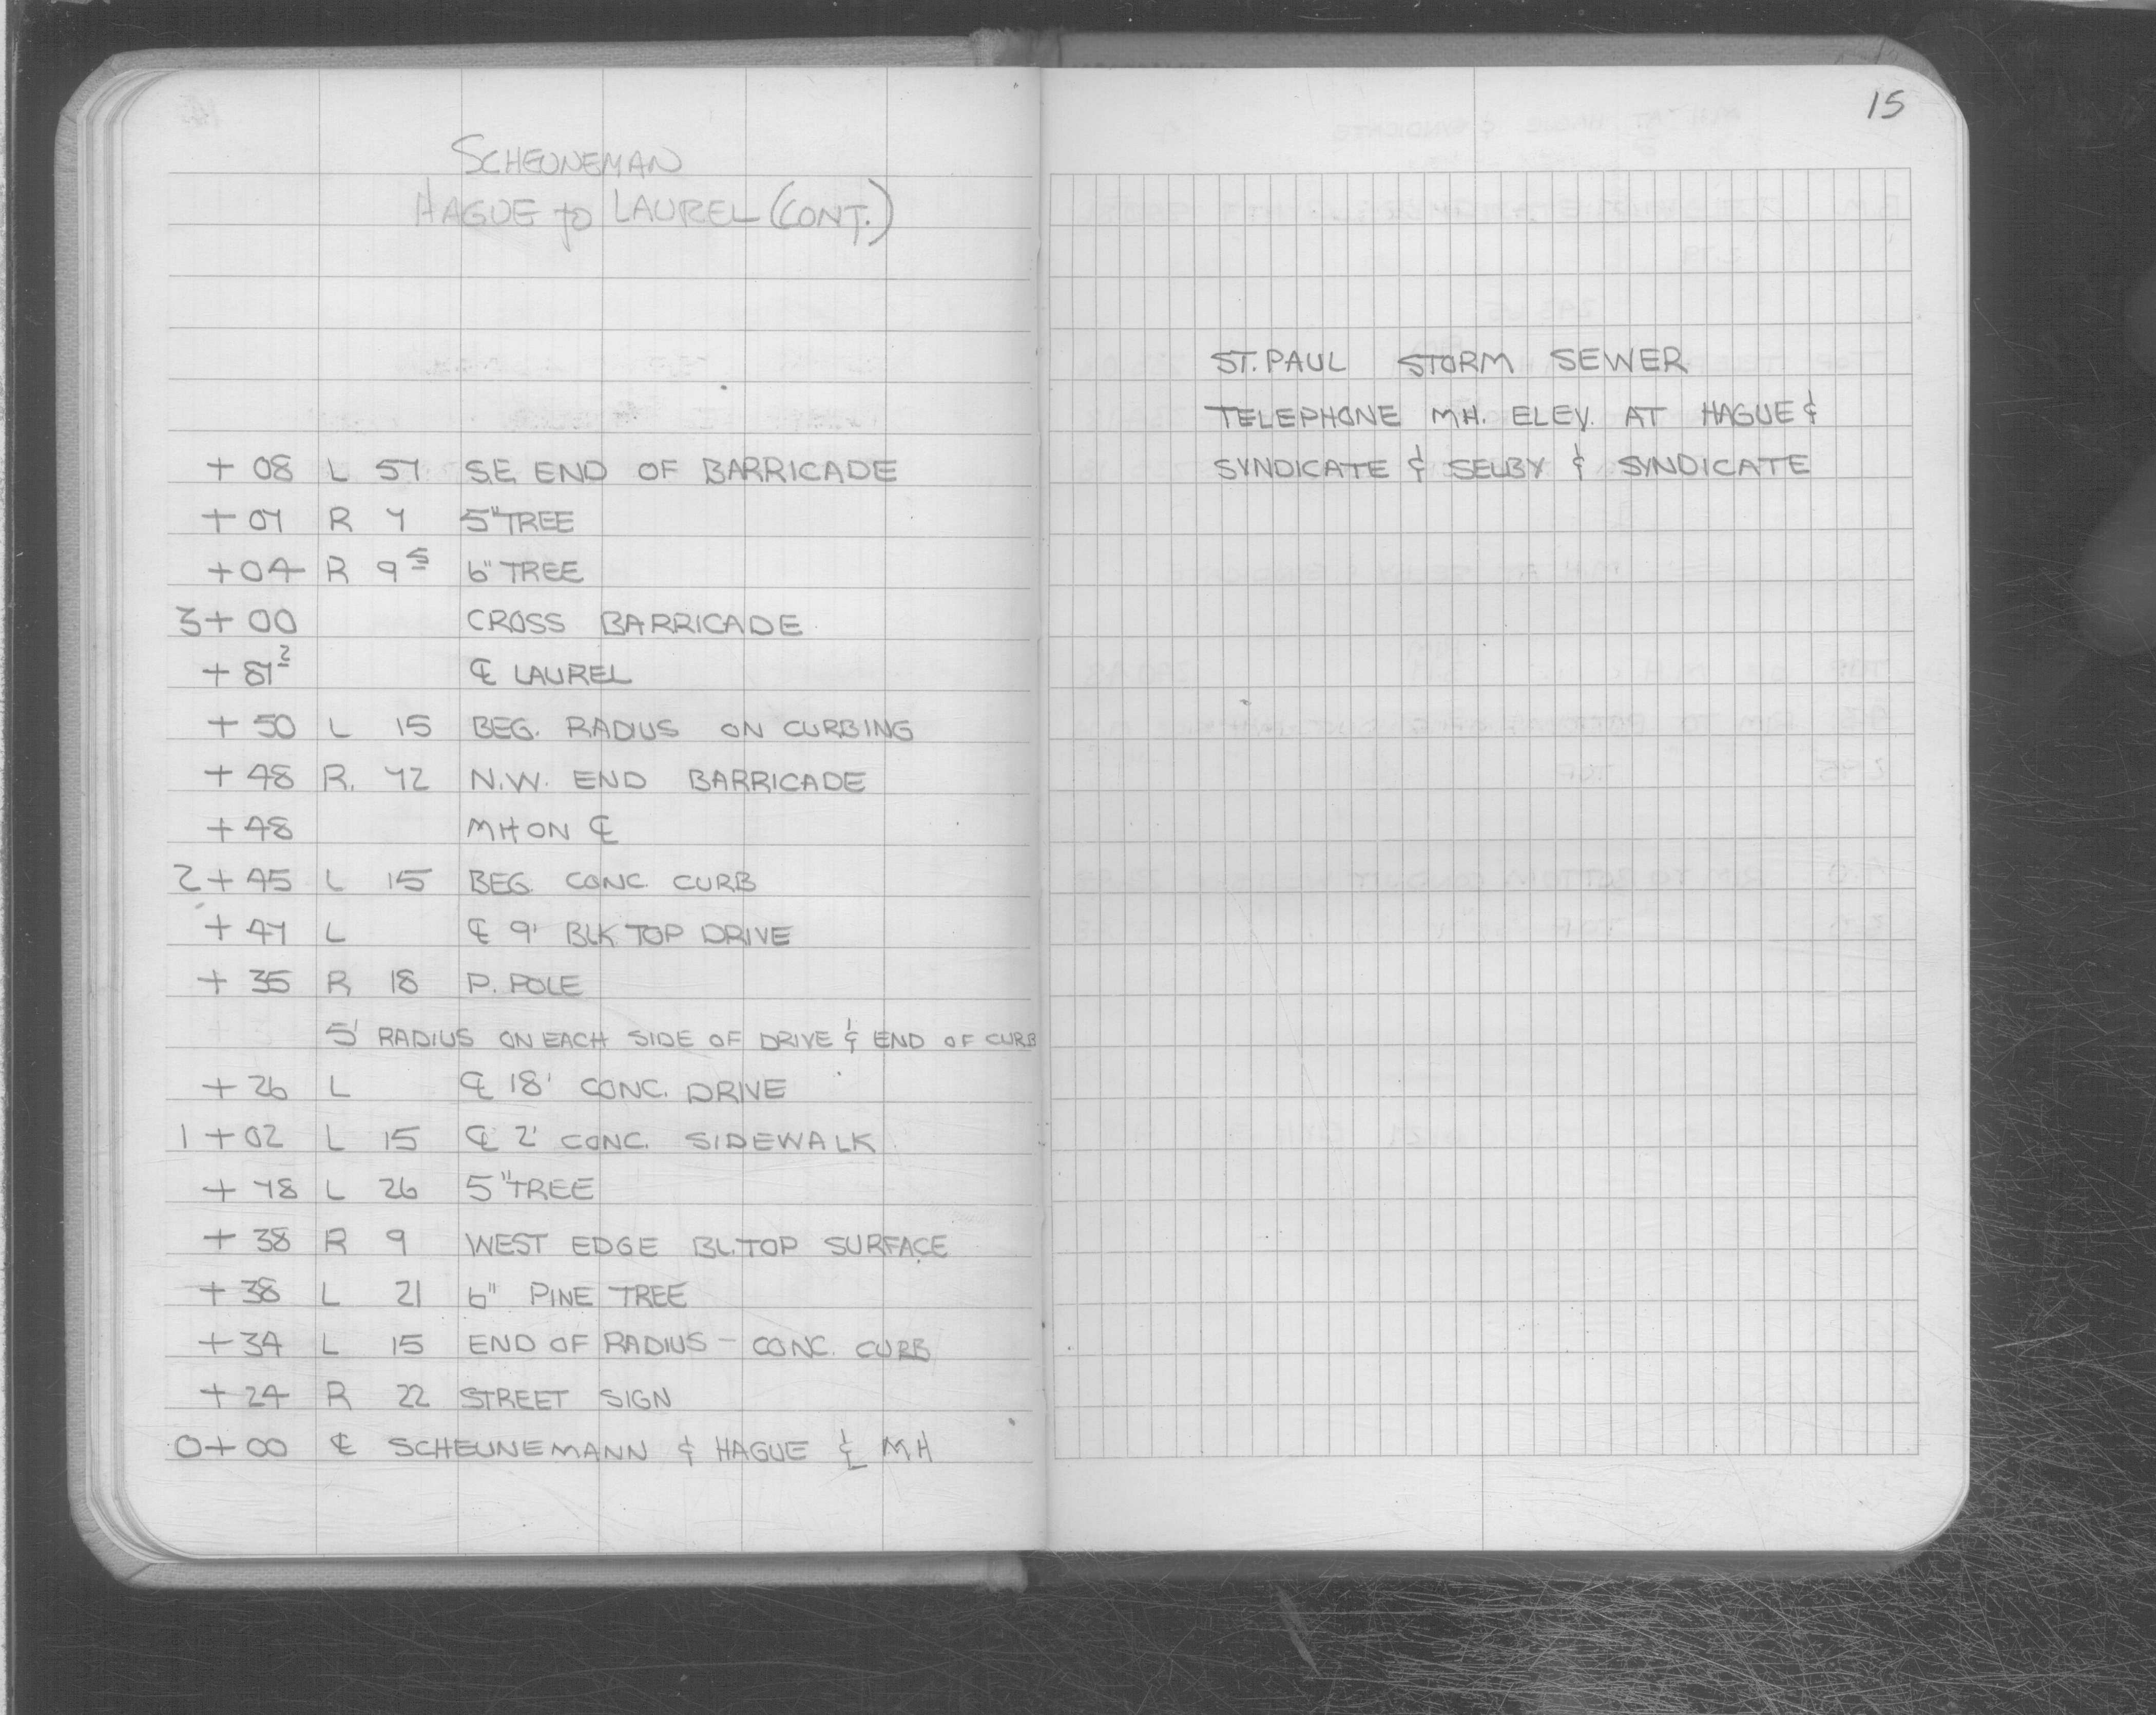 15
SCHEUNEMAN
HAGUE to LAUREL (CONT.)
+ 08 L 57 S.E. END OF BARRICADE
+ 07 R 7 5" TREE
+ 04 R 9⁵ 6" TREE
3+ 00 CROSS BARRICADE
+ 87² ℄ LAUREL
+ 50 L 15 BEG. RADIUS ON CURBING
+ 48 R. 72 N.W. END BARRICADE
+ 48 MH ON ℄
2 + 45 L 15 BEG. CONC. CURB
+ 47 L ℄ 9' BLK TOP DRIVE
+ 35 R 18 P. POLE
5' RADIUS ON EACH SIDE OF DRIVE & END OF CURB
+ 26 L ℄ 18' CONC. DRIVE
1 + 02 L 15 ℄ 2' CONC. SIDEWALK
+ 78 L 26 5" TREE
+ 38 R 9 WEST EDGE BL.TOP SURFACE
+ 38 L 21 6" PINE TREE
+ 34 L 15 END OF RADIUS - CONC. CURB
+ 24 R 22 STREET SIGN
0+ 00 ℄ SCHEUNEMANN & HAGUE & MH
ST. PAUL STORM SEWER
TELEPHONE MH. ELEV. AT HAGUE &
SYNDICATE & SELBY & SYNDICATE